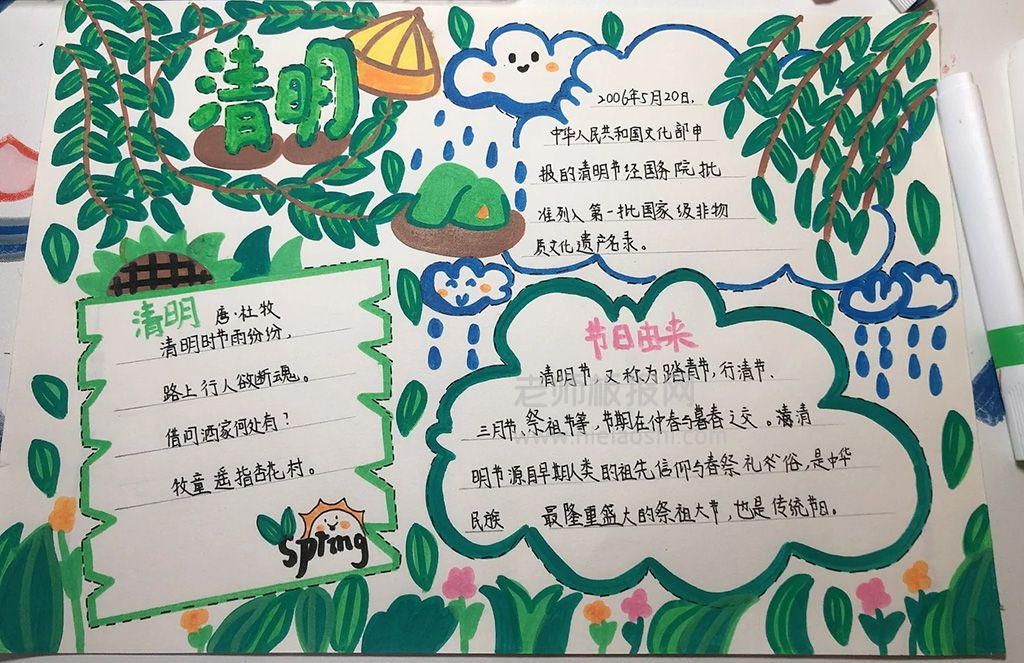 清明
2006年5月20日,
中华人民共和国文化部申
报的清明节经国务院批
准列入第一批国家级非物
质文化遗产名录。
清明 唐·杜牧
清明时节雨纷纷,
路上行人欲断魂。
借问酒家何处有?
牧童遥指杏花村。
Spring
节日由来
清明节,又称为踏青节,行清节、
三月节、祭祖节等,节期在仲春与暮春之交。清
明节源自早期人类的祖先信仰与春祭礼俗,是中华
民族 最隆重盛大的祭祖大节,也是传统节日。
老师板报网